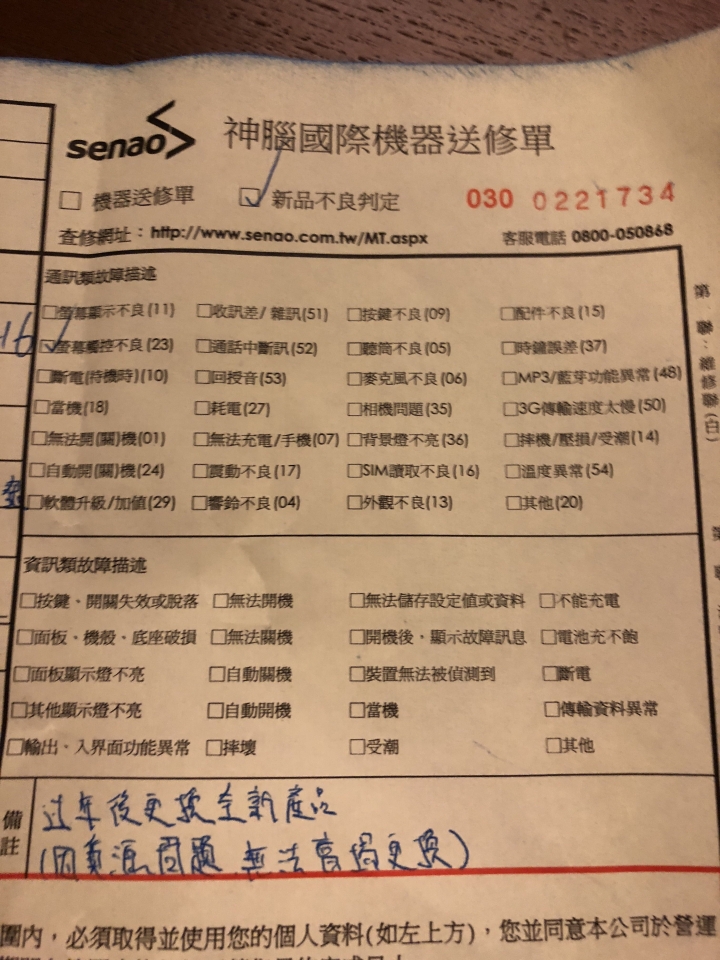 senao 神腦國際機器送修單
□ 機器送修單 ☑ 新品不良判定 030 0221734
查修網址：http://www.senao.com.tw/MT.aspx 客服電話 0800-050868
通訊類故障描述
□螢幕顯示不良(11) □收訊差/ 雜訊(51) □按鍵不良(09) □配件不良(15)
☑螢幕觸控不良(23) □通話中斷訊(52) □聽筒不良(05) □時鐘誤差(37)
□斷電(待機時)(10) □回授音(53) □麥克風不良(06) □MP3/藍芽功能異常(48)
□當機(18) □耗電(27) □相機問題(35) □3G傳輸速度太慢(50)
□無法開(關)機(01) □無法充電/手機(07) □背景燈不亮(36) □摔機/壓損/受潮(14)
□自動開(關)機(24) □震動不良(17) □SIM讀取不良(16) □溫度異常(54)
□軟體升級/加值(29) □響鈴不良(04) □外觀不良(13) □其他(20)
資訊類故障描述
□按鍵、開關失效或脫落 □無法開機 □無法儲存設定值或資料 □不能充電
□面板、機殼、底座破損 □無法關機 □開機後，顯示故障訊息 □電池充不飽
□面板顯示燈不亮 □自動關機 □裝置無法被偵測到 □斷電
□其他顯示燈不亮 □自動開機 □當機 □傳輸資料異常
□輸出、入界面功能異常 □摔壞 □受潮 □其他
備註
过年後更換全新產品
(因貨源問題 無法當場更換)
圍內，必須取得並使用您的個人資料(如左上方)，您並同意本公司於營運
第 聯：維修聯(白)